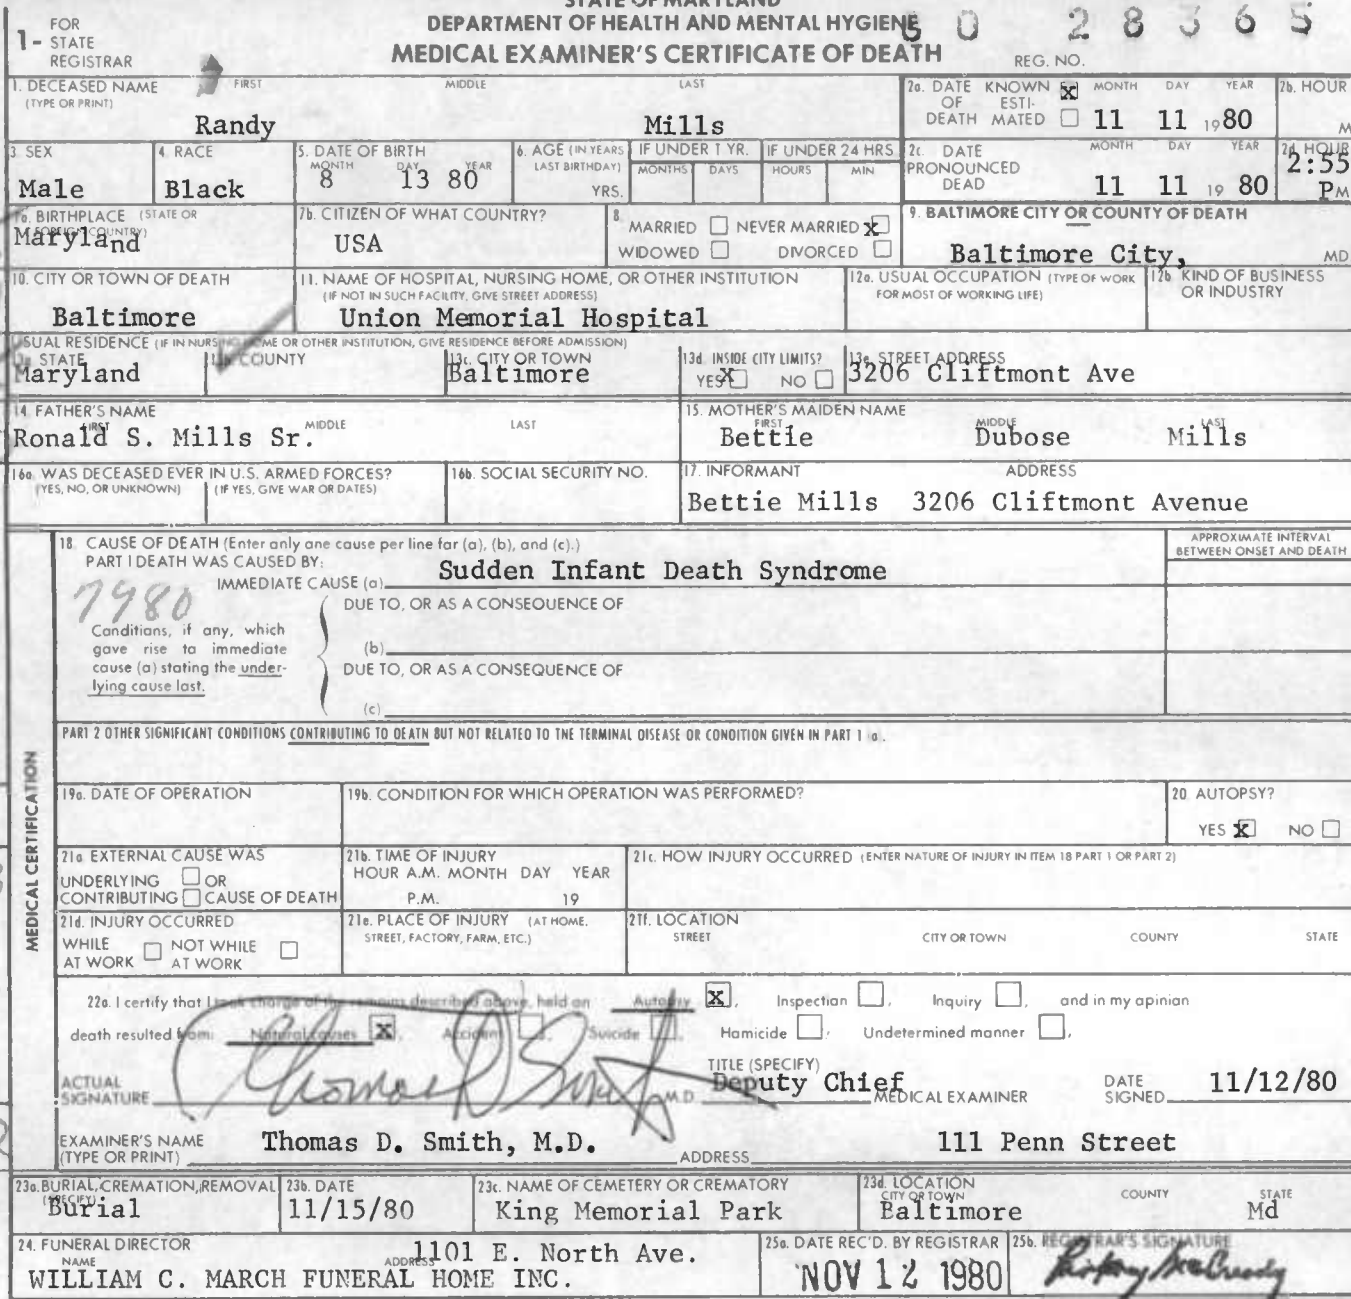 STATE OF MARYLAND
DEPARTMENT OF HEALTH AND MENTAL HYGIENE
MEDICAL EXAMINER'S CERTIFICATE OF DEATH
1- FOR STATE REGISTRAR
REG. NO. 80 28365
1. DECEASED NAME (TYPE OR PRINT) FIRST MIDDLE LAST
Randy Mills
2a. DATE OF DEATH KNOWN X ESTIMATED MONTH DAY YEAR 11 11 1980
2b. HOUR M
3. SEX Male
4. RACE Black
5. DATE OF BIRTH MONTH DAY YEAR 8 13 80
6. AGE (IN YEARS LAST BIRTHDAY) YRS.
IF UNDER 1 YR. MONTHS DAYS
IF UNDER 24 HRS HOURS MIN
2c. DATE PRONOUNCED DEAD MONTH DAY YEAR 11 11 19 80
2d. HOUR 2:55 PM
7a. BIRTHPLACE (STATE OR FOREIGN COUNTRY) Maryland
7b. CITIZEN OF WHAT COUNTRY? USA
8 MARRIED NEVER MARRIED X
WIDOWED DIVORCED
9. BALTIMORE CITY OR COUNTY OF DEATH
Baltimore City, MD
10. CITY OR TOWN OF DEATH Baltimore
11. NAME OF HOSPITAL, NURSING HOME, OR OTHER INSTITUTION
(IF NOT IN SUCH FACILITY, GIVE STREET ADDRESS)
Union Memorial Hospital
12a. USUAL OCCUPATION (TYPE OF WORK FOR MOST OF WORKING LIFE)
12b. KIND OF BUSINESS OR INDUSTRY
USUAL RESIDENCE (IF IN NURSING HOME OR OTHER INSTITUTION, GIVE RESIDENCE BEFORE ADMISSION)
13a. STATE Maryland
13b. COUNTY
13c. CITY OR TOWN Baltimore
13d. INSIDE CITY LIMITS? YES X NO
13e. STREET ADDRESS 3206 Cliftmont Ave
14. FATHER'S NAME FIRST MIDDLE LAST
Ronald S. Mills Sr.
15. MOTHER'S MAIDEN NAME FIRST MIDDLE LAST
Bettie Dubose Mills
16a. WAS DECEASED EVER IN U.S. ARMED FORCES?
(YES, NO, OR UNKNOWN) (IF YES, GIVE WAR OR DATES)
16b. SOCIAL SECURITY NO.
17. INFORMANT ADDRESS
Bettie Mills 3206 Cliftmont Avenue
MEDICAL CERTIFICATION
18. CAUSE OF DEATH (Enter only one cause per line for (a), (b), and (c).)
PART I DEATH WAS CAUSED BY:
IMMEDIATE CAUSE (a) Sudden Infant Death Syndrome
APPROXIMATE INTERVAL BETWEEN ONSET AND DEATH
7980
DUE TO, OR AS A CONSEQUENCE OF
Conditions, if any, which gave rise to immediate cause (a) stating the underlying cause last.
(b)
DUE TO, OR AS A CONSEQUENCE OF
(c)
PART 2 OTHER SIGNIFICANT CONDITIONS CONTRIBUTING TO DEATH BUT NOT RELATED TO THE TERMINAL DISEASE OR CONDITION GIVEN IN PART 1 a.
19a. DATE OF OPERATION
19b. CONDITION FOR WHICH OPERATION WAS PERFORMED?
20 AUTOPSY? YES X NO
21a EXTERNAL CAUSE WAS
UNDERLYING OR
CONTRIBUTING CAUSE OF DEATH
21b. TIME OF INJURY
HOUR A.M. MONTH DAY YEAR
P.M. 19
21c. HOW INJURY OCCURRED (ENTER NATURE OF INJURY IN ITEM 18 PART 1 OR PART 2)
21d. INJURY OCCURRED
WHILE AT WORK NOT WHILE AT WORK
21e. PLACE OF INJURY (AT HOME, STREET, FACTORY, FARM, ETC.)
21f. LOCATION
STREET CITY OR TOWN COUNTY STATE
22a. I certify that I took charge of the remains described above, held an Autopsy X, Inspection, Inquiry, and in my opinion
death resulted from: Natural causes X, Accident, Suicide, Homicide, Undetermined manner,
ACTUAL SIGNATURE Thomas D Smith M.D.
TITLE (SPECIFY) Deputy Chief MEDICAL EXAMINER
DATE SIGNED 11/12/80
EXAMINER'S NAME (TYPE OR PRINT) Thomas D. Smith, M.D.
ADDRESS 111 Penn Street
23a. BURIAL, CREMATION, REMOVAL (SPECIFY) Burial
23b. DATE 11/15/80
23c. NAME OF CEMETERY OR CREMATORY King Memorial Park
23d. LOCATION CITY OR TOWN COUNTY STATE
Baltimore Md
24. FUNERAL DIRECTOR
NAME ADDRESS 1101 E. North Ave.
WILLIAM C. MARCH FUNERAL HOME INC.
25a. DATE REC'D. BY REGISTRAR NOV 12 1980
25b. REGISTRAR'S SIGNATURE